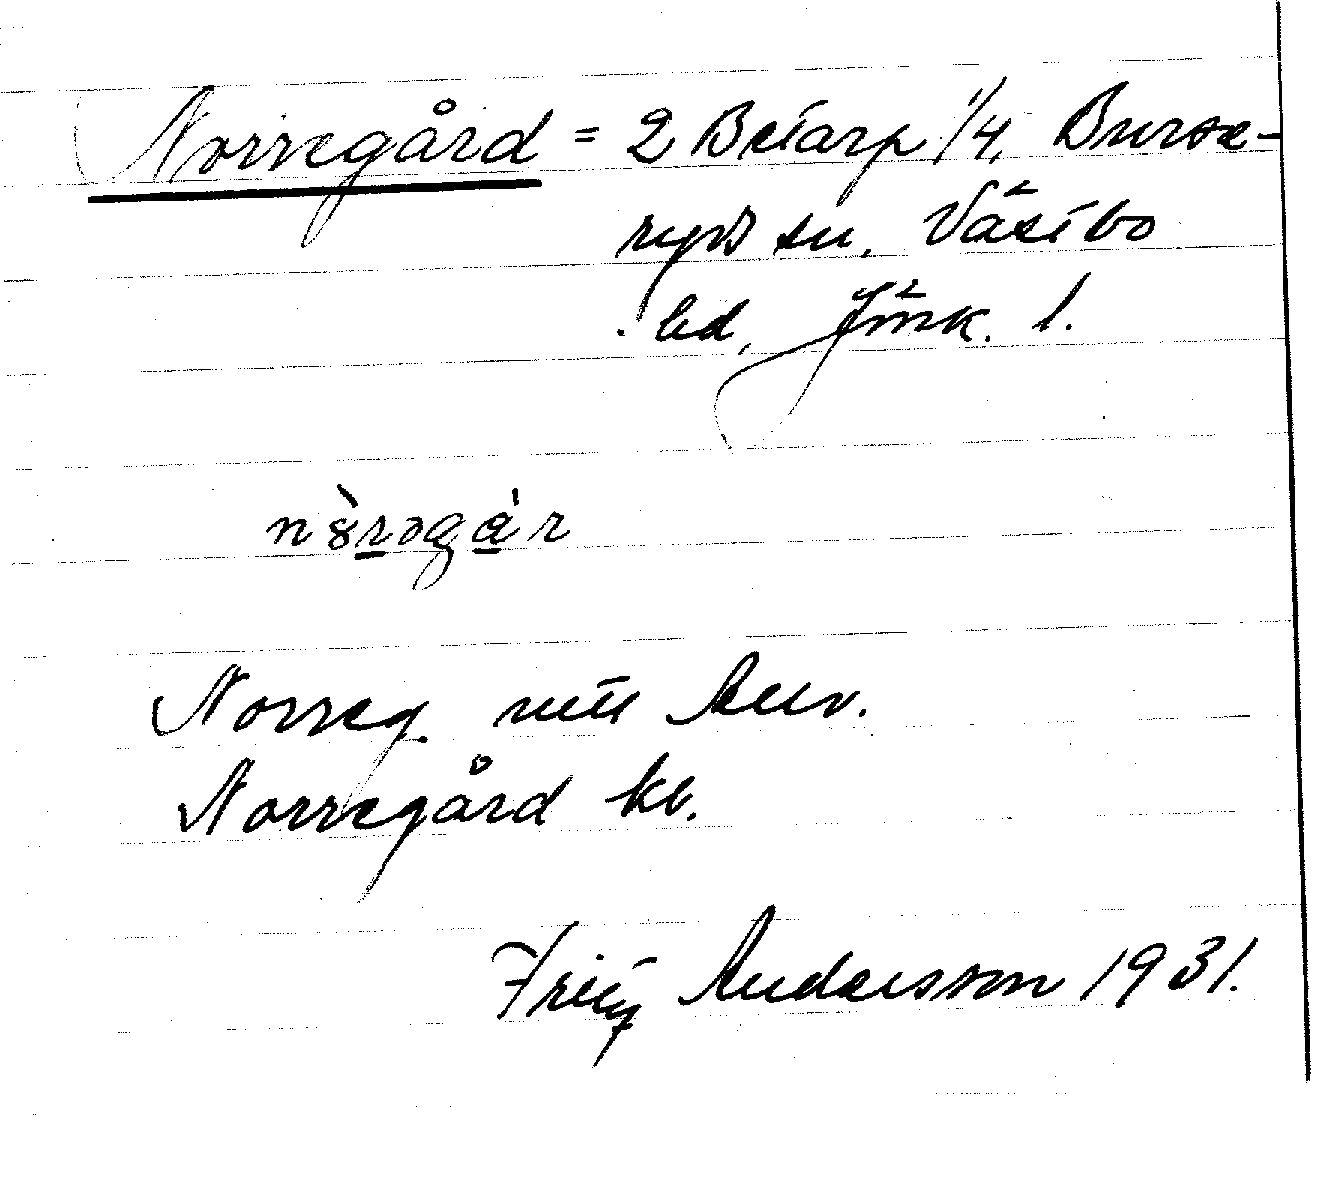 Norregård = 2 Betarp 1/4, Burse-
ryds sn, Västbo
hd, Jönk. l.
Norreg.
Norregård kb.
Fritz Andersson 1931.